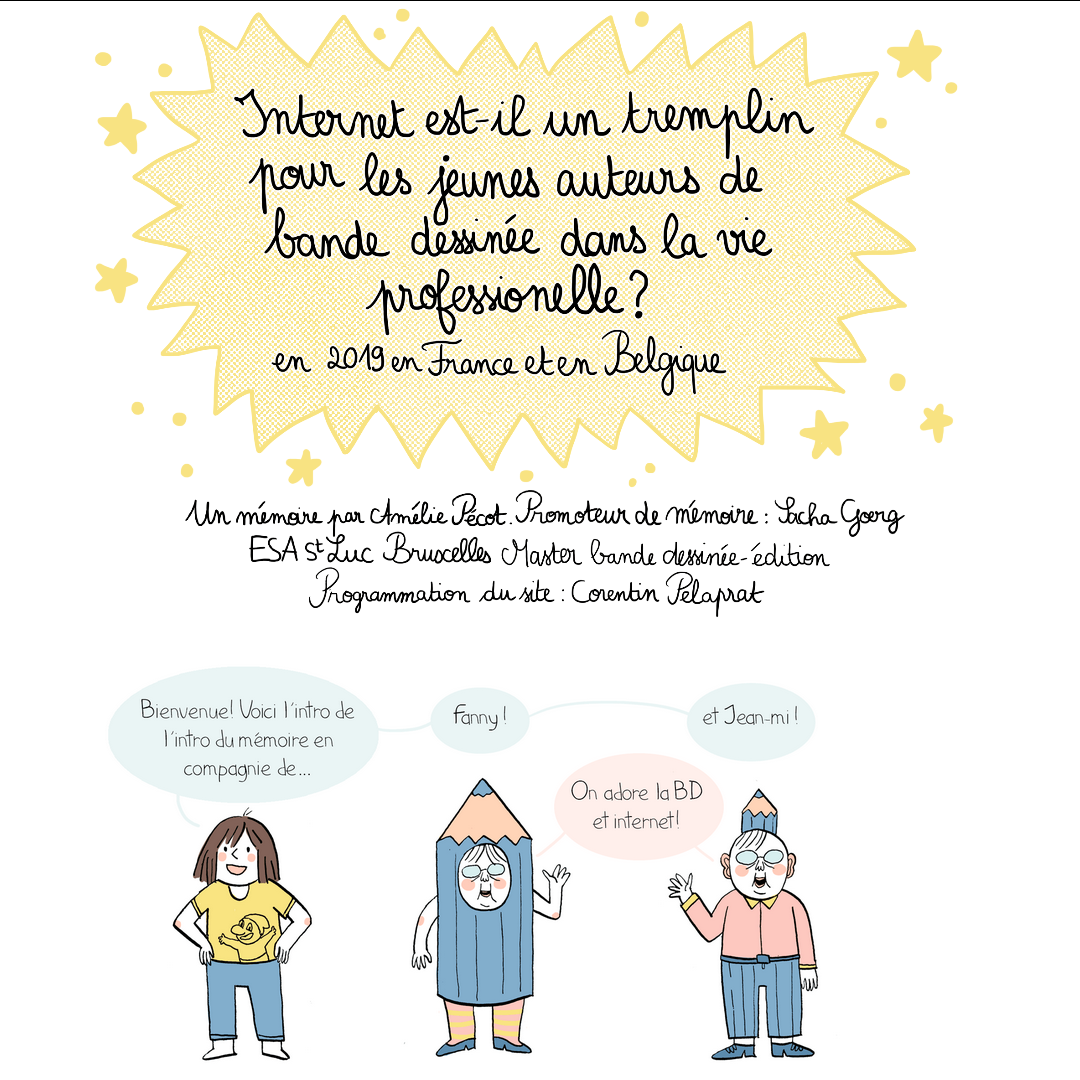 Internet est-il un tremplin
pour les jeunes auteurs de
bande dessinée dans la vie
professionelle?
en 2019 en France et en Belgique
Un mémoire par Amélie Pécot. Promoteur de mémoire : Sacha Goerg
ESA St Luc Bruxelles Master bande dessinée-édition
Programmation du site : Corentin Pelaprat
Bienvenue! Voici l'intro de
l'intro du mémoire en
compagnie de...
Fanny!
et Jean-mi!
On adore la BD
et internet!